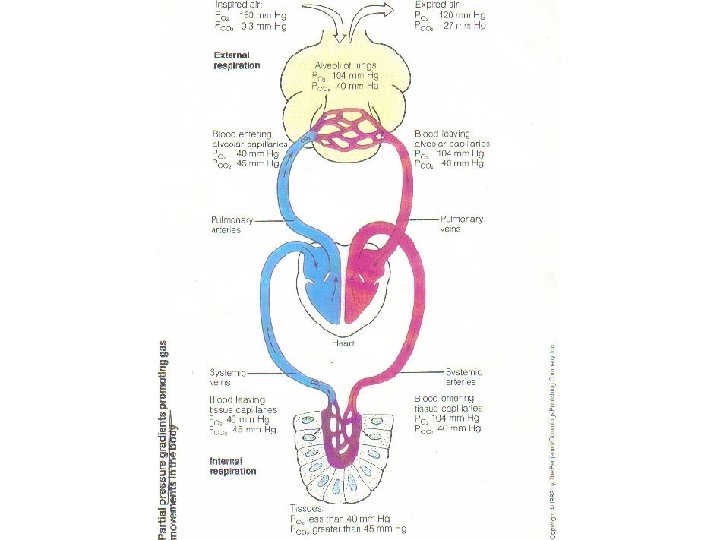 Inspired air:
PO2 160 mm Hg
PCO2 0.3 mm Hg
Expired air
PO2 120 mm Hg
PCO2 27 mm Hg
External
respiration
Alveoli of lungs
PO2 104 mm Hg
PCO2 40 mm Hg
Blood entering
alveolar capillaries
PO2 40 mm Hg
PCO2 45 mm Hg
Blood leaving
alveolar capillaries
PO2 104 mm Hg
PCO2 40 mm Hg
Pulmonary
arteries
Pulmonary
veins
Heart
Systemic
veins
Systemic
arteries
Blood leaving
tissue capillaries
PO2 40 mm Hg
PCO2 45 mm Hg
Blood entering
tissue capillaries
PO2 104 mm Hg
PCO2 40 mm Hg
Internal
respiration
Tissues
PO2 less than 40 mm Hg
PCO2 greater than 45 mm Hg
Partial pressure gradients promoting gas
movements in the body
Copyright © by The Benjamin/Cummings Publishing Company Inc.